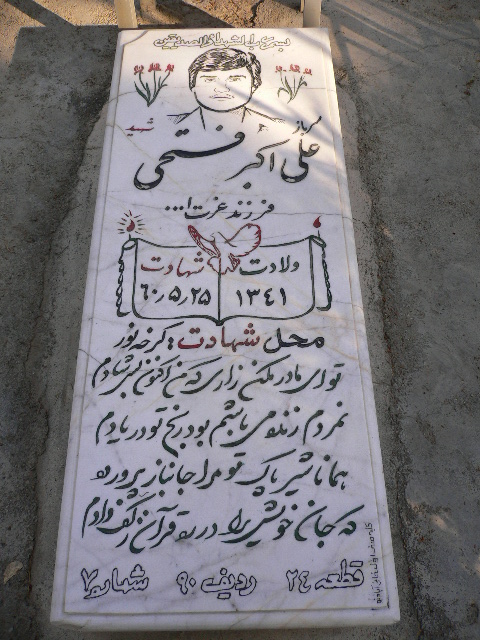 بسم رب الشهداء والصدیقین
شهید
سرباز
علی اکبر فتحی
فرزند عزت ا...
ولادت شهادت
۱۳٤۱ ۶۰٫۵٫۲۵
محل شهادت : کرخه نور
تو ای مادر مکن زاری که من اکنون شادم
نمردم زنده می باشم بود رنج تو در یادم
همانا شیر پاک تو مرا جانباز پرورده
که جان خویش را در ره قرآن ز کف دادم
قطعه ۲٤ ردیف ۹۰ شماره ۷